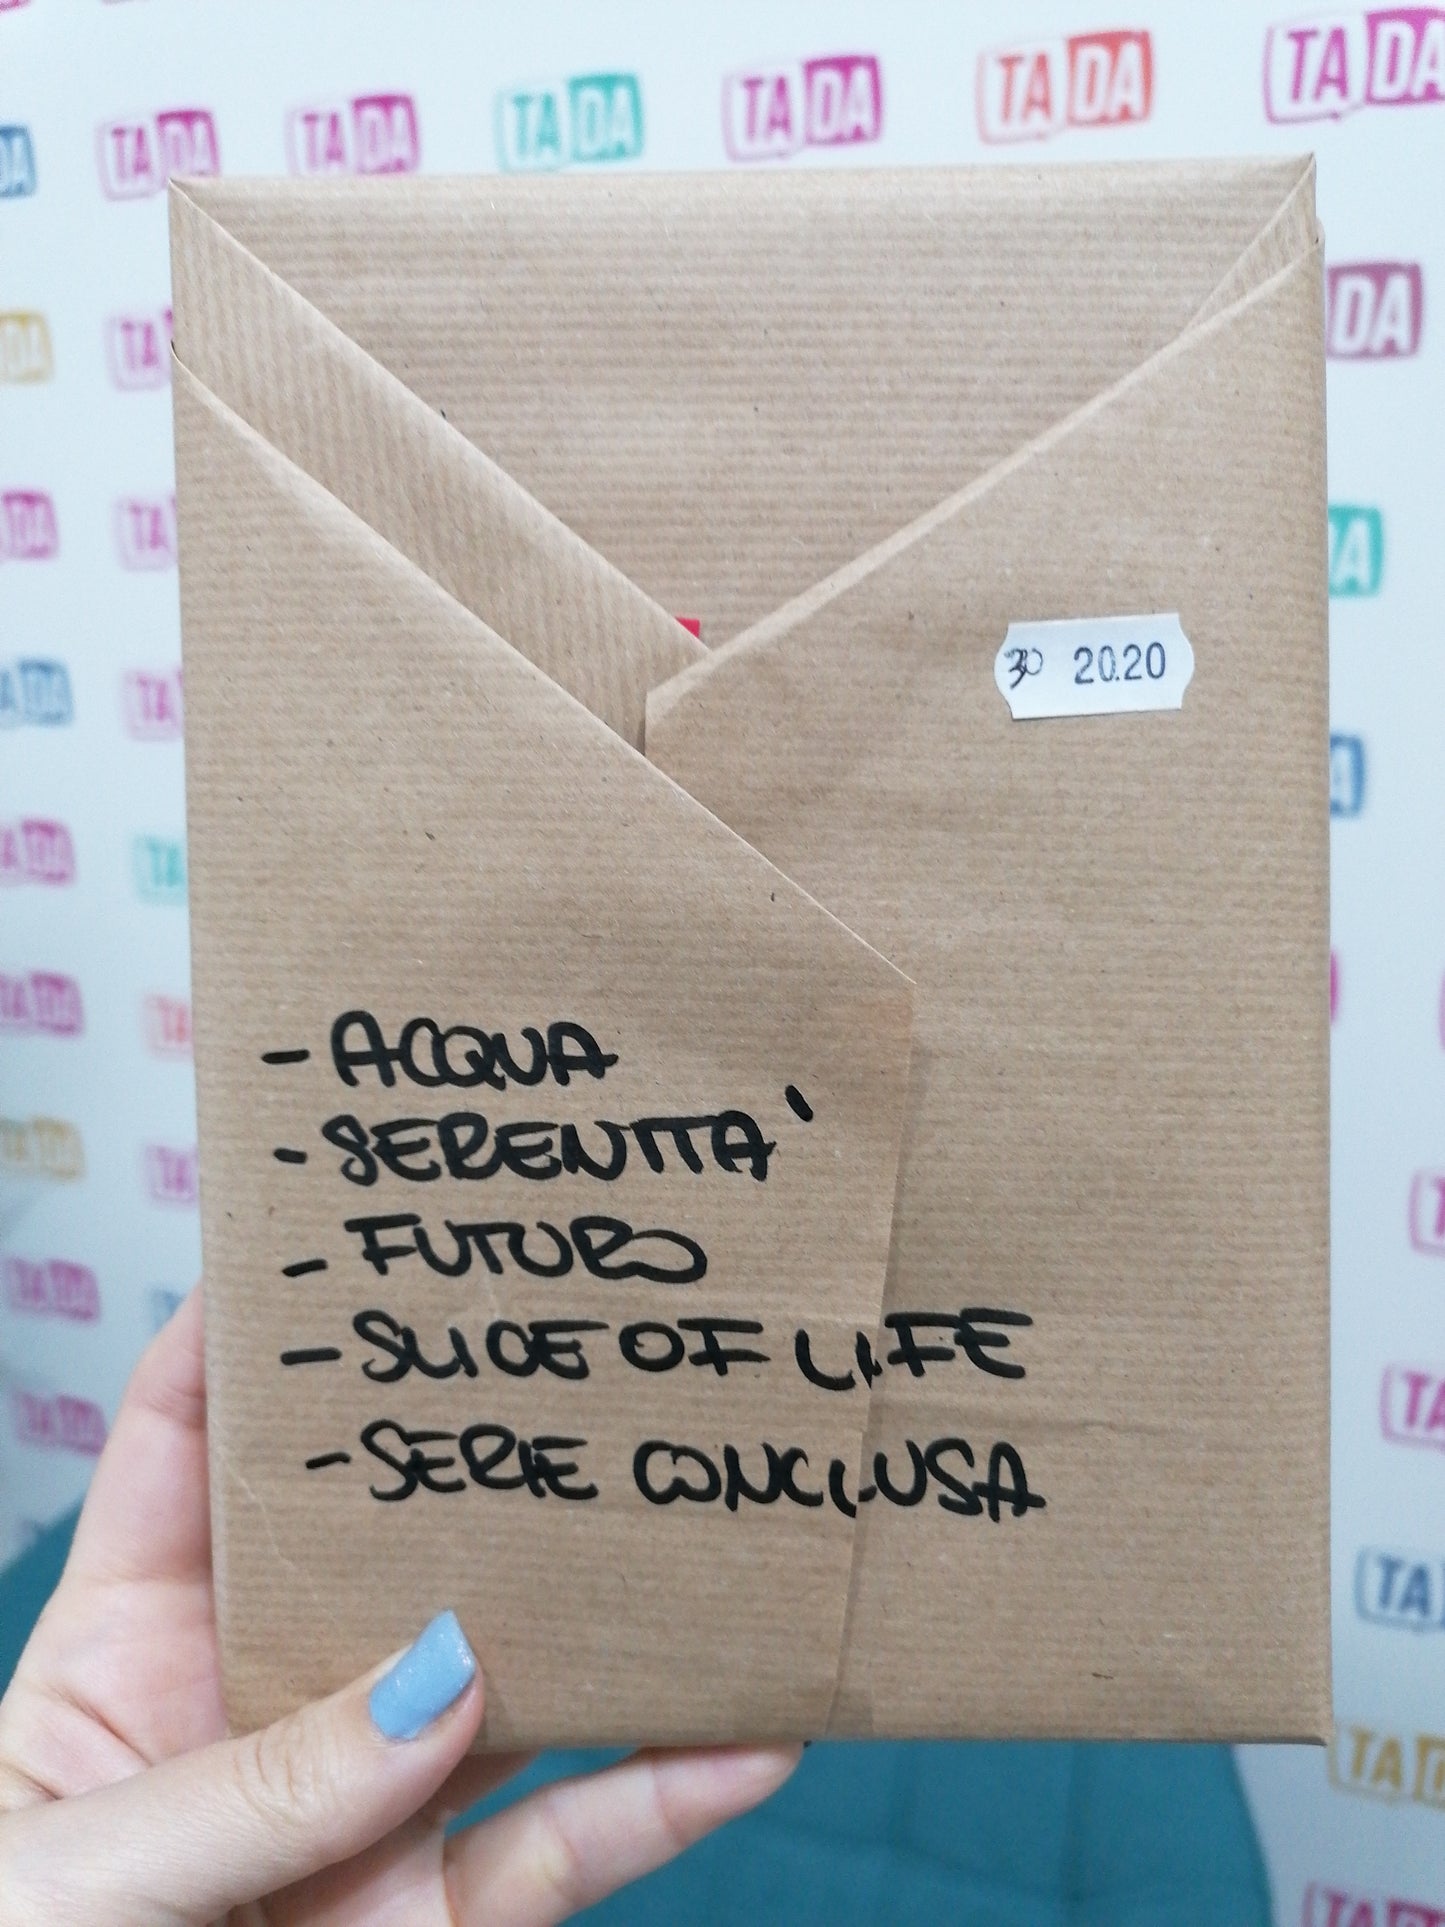 TADA TADA TADA TADA TADA TADA
30 20.20
- ACQUA
- SERENITA'
- FUTURO
- SLICE OF LIFE
- SERIE CONCLUSA